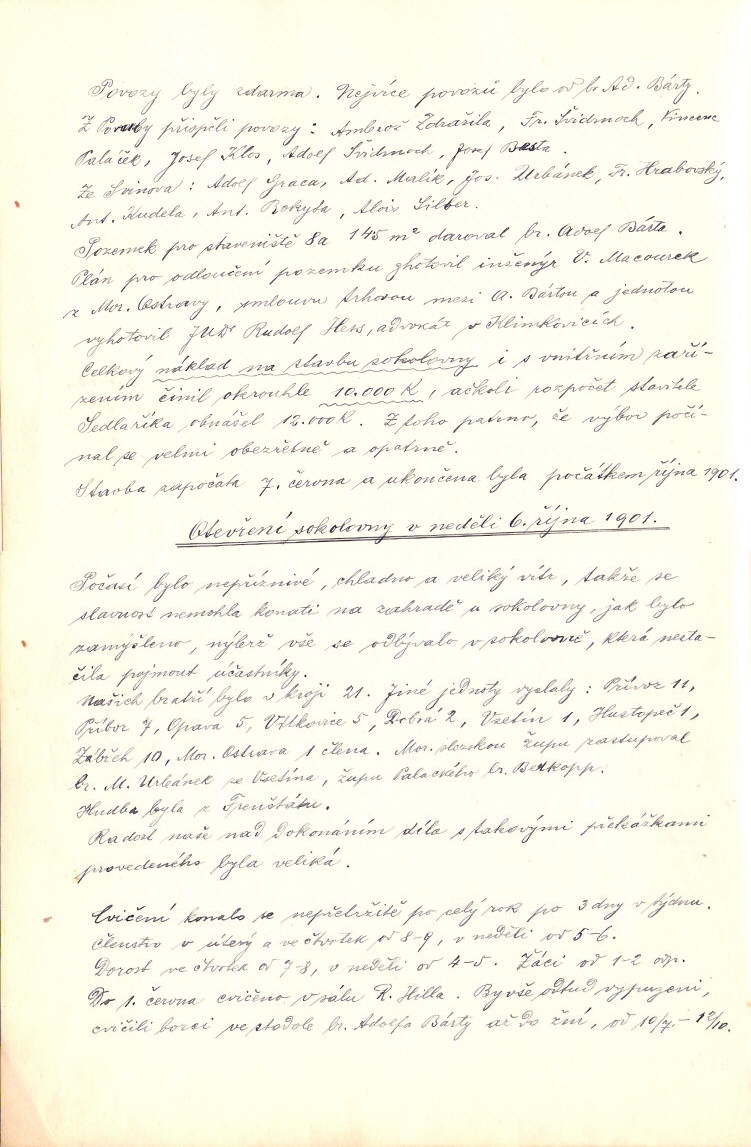 Povozy byly zdarma. Nejvíce povozů bylo od br. Ad. Bárty.
Z Poruby přispěli povozy: Ambrož Zdražila, Fr. Švidrnoch, Vincenc
Paláček, Josef Klos, Adolf Švidrnoch, Josef Besta.
Ze Svinova: Adolf Graca, Ad. Merlík, Jos. Urbánek, Fr. Hrabovský,
Ant. Kudela, Ant. Rokyta, Alois Silber.
Pozemek pro staveniště 8a 145 m² daroval br. Adolf Bárta.
Plán pro odloučení pozemku zhotovil inšenýr V. Macourek
z Mor. Ostravy, smlouvu trhovou mezi A. Bártou a jednotou
vyhotovil JUDr Rudolf Hess, advokát v Klimkovicích.
Celkový náklad na stavbu sokolovny i s vnitřním zaří-
zením činil okrouhle 10.000 K, ačkoli rozpočet stavitele
Sedlaříka obnášel 12.000 K. Z toho patrno, že výbor počí-
nal se velmi obezřetně a opatrně.
Stavba započata 7. června a ukončena byla počátkem října 1901.
Otevření sokolovny v neděli 6. října 1901.
Počasí bylo nepříznivé, chladno a veliký vítr, takže se
slavnost nemohla konati na zahradě u sokolovny, jak bylo
zamýšleno, nýbrž vše se odbývalo v sokolovně, která nesta-
čila pojmout účastníky.
Našich bratří bylo v kroji 21. Jiné jednoty vyslaly: Přívoz 11,
Příbor 7, Opava 5, Vítkovice 5, Dobrá 2, Vsetín 1, Hustopeč 1,
Zábřeh 10, Mor. Ostrava 1 člena. Mor. slezskou župu zastupoval
br. M. Urbánek ze Vsetína, župu Palackého br. Betkopp.
Hudba byla z Frenštátu.
Radost naše nad dokonáním díla s takovými překážkami
provedeného byla veliká.
Cvičení konalo se nepřetržitě po celý rok po 3 dny v týdnu.
Členstvo v úterý a ve čtvrtek od 8-9, v neděli od 5-6.
Dorost ve čtvrtek od 7-8, v neděli od 4-5. Žáci od 1-2 odp.
Do 1. června cvičeno v sálu R. Hilla. Byvše odtud vypuzeni,
cvičili borci ve stodole br. Adolfa Bárty až do žní, od 10/7. - 12/10.